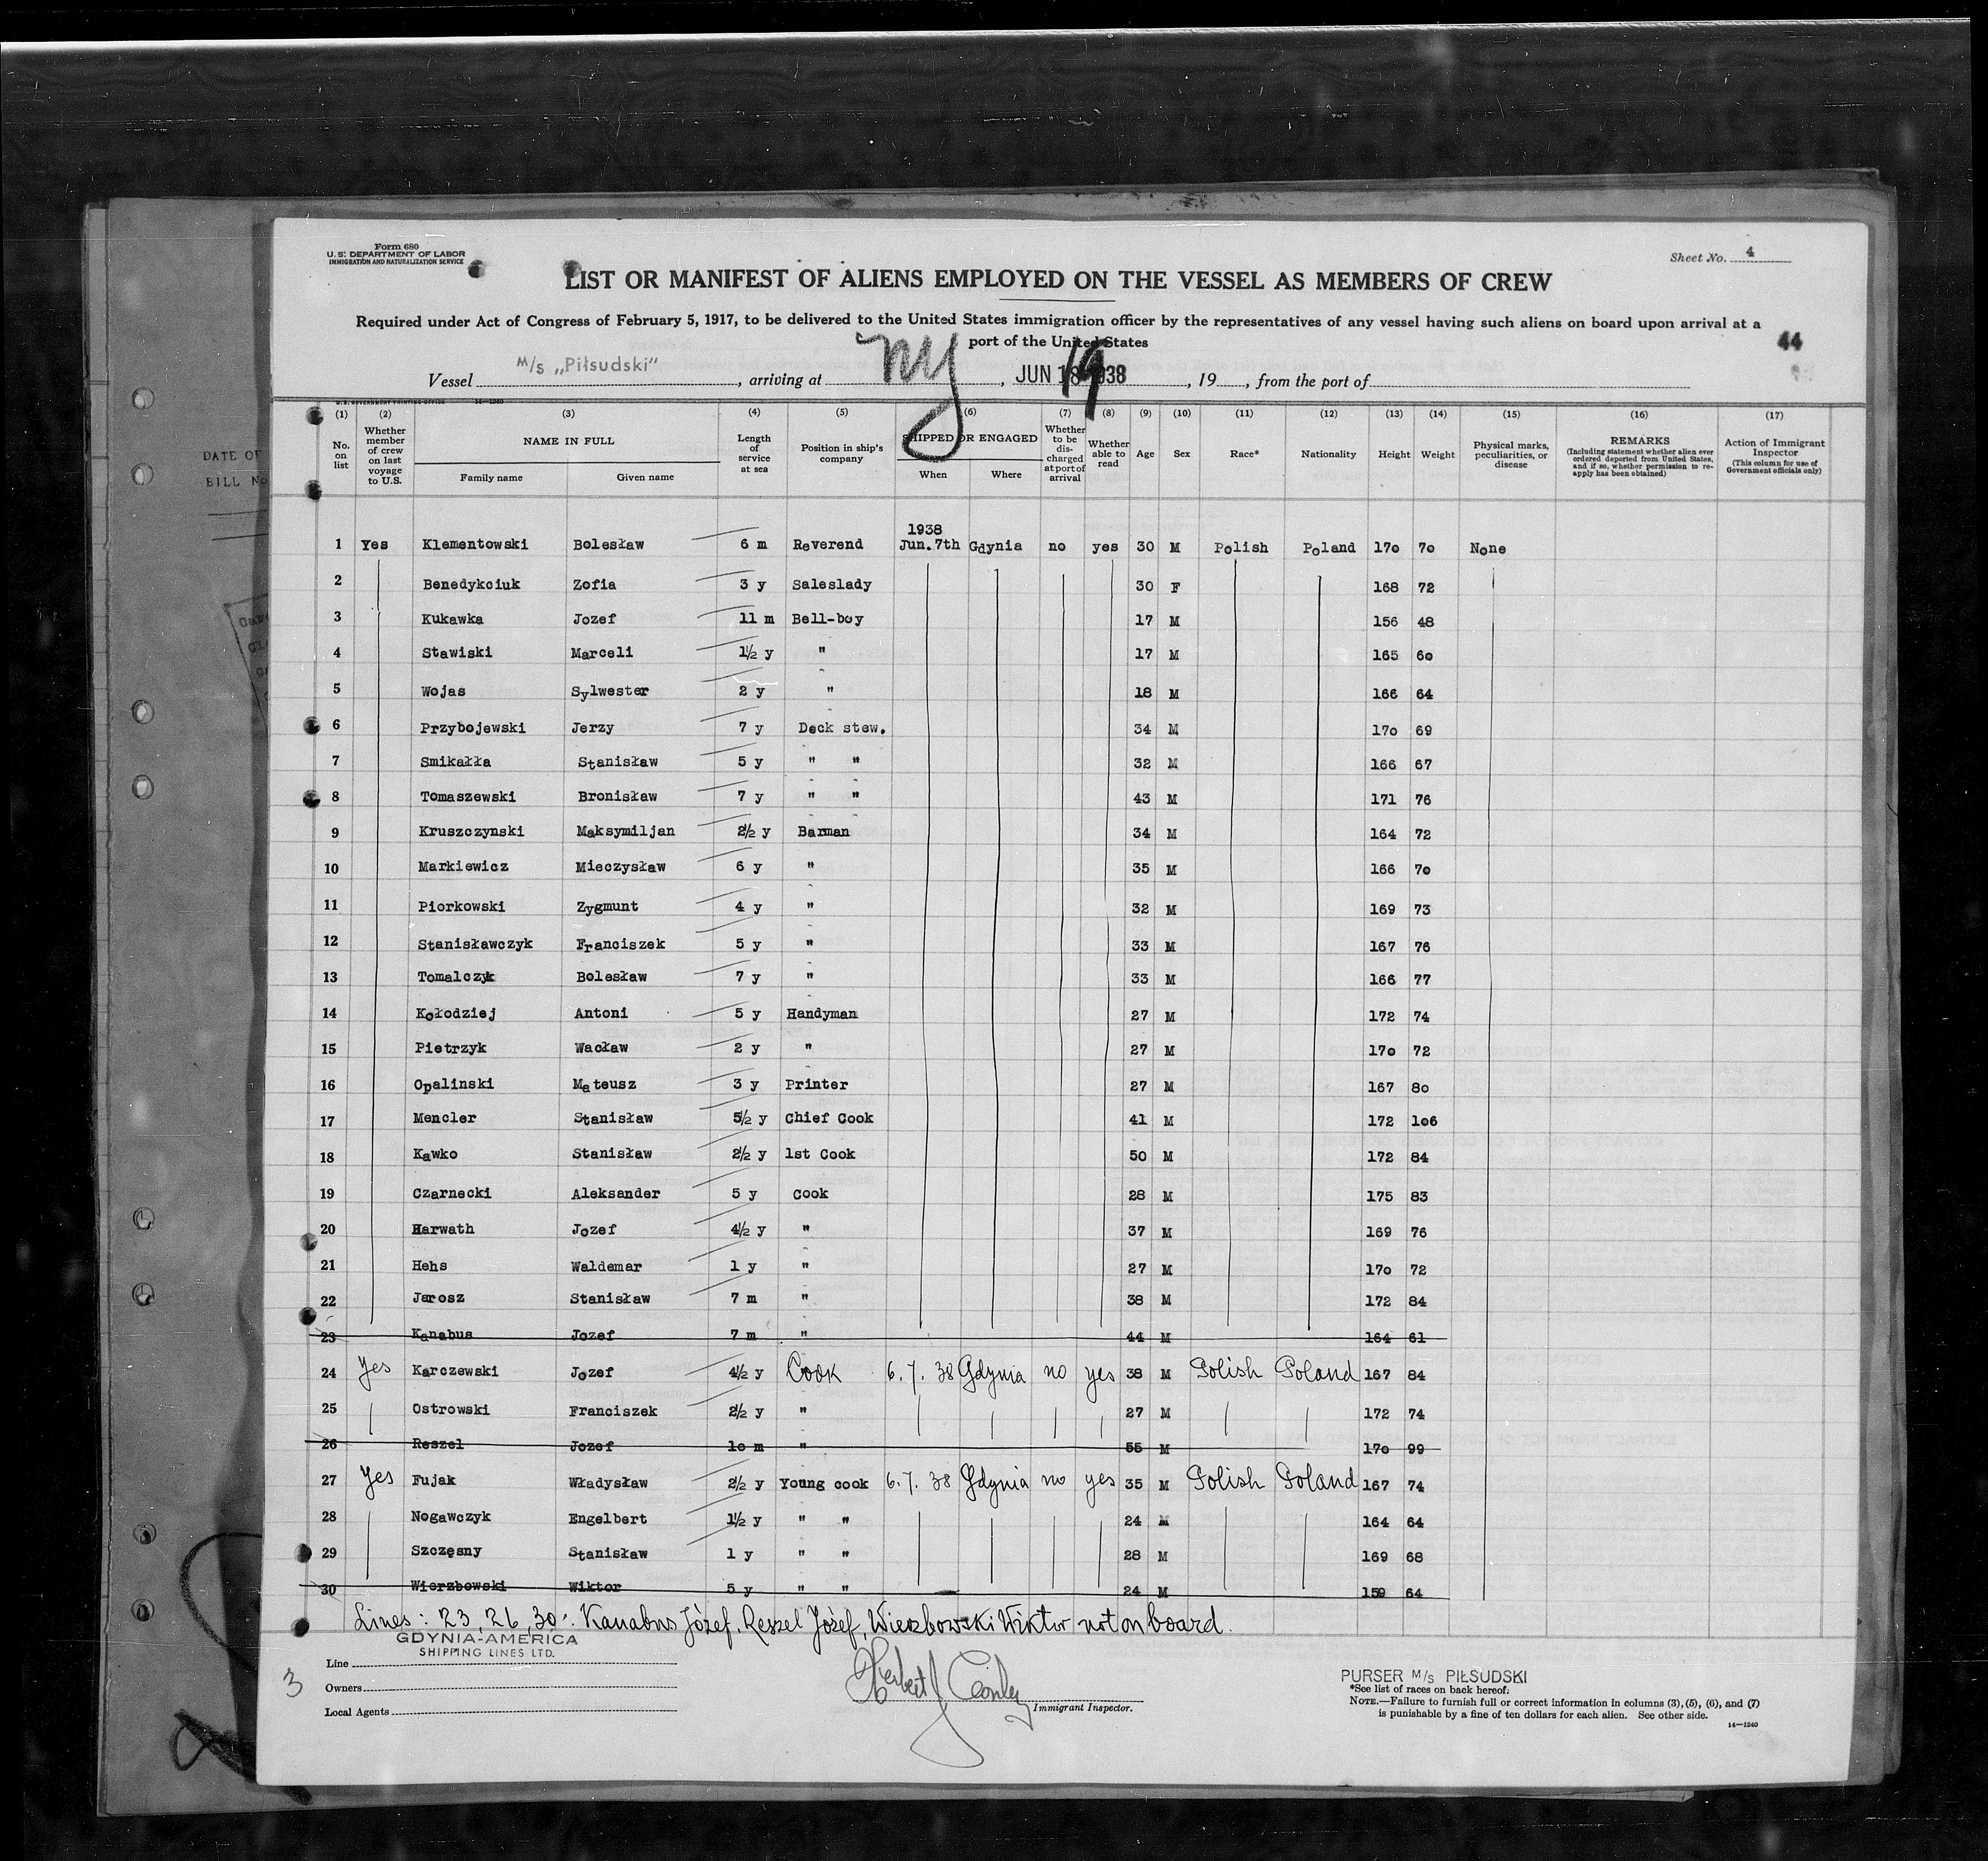 Form 680
U. S. DEPARTMENT OF LABOR
IMMIGRATION AND NATURALIZATION SERVICE
Sheet No. 4
LIST OR MANIFEST OF ALIENS EMPLOYED ON THE VESSEL AS MEMBERS OF CREW
Required under Act of Congress of February 5, 1917, to be delivered to the United States immigration officer by the representatives of any vessel having such aliens on board upon arrival at a
port of the United States
44
Vessel M/s „Piłsudski“, arriving at NY, JUN 18 1938 19, 19 , from the port of
U. S. GOVERNMENT PRINTING OFFICE 14—1240
(1) (2) (3) (4) (5) (6) (7) (8) (9) (10) (11) (12) (13) (14) (15) (16) (17)
No. on list
Whether member of crew on last voyage to U.S.
NAME IN FULL
Family name Given name
Length of service at sea
Position in ship's company
SHIPPED OR ENGAGED
When Where
Whether to be discharged at port of arrival
Whether able to read
Age Sex Race* Nationality Height Weight
Physical marks, peculiarities, or disease
REMARKS
(Including statement whether alien ever ordered deported from United States, and if so, whether permission to reapply has been obtained)
Action of Immigrant Inspector
(This column for use of Government officials only)
1938
1 Yes Klementowski Bolesław 6 m Reverend Jun. 7th Gdynia no yes 30 M Polish Poland 170 70 None
2 Benedykciuk Zofia 3 y Saleslady 30 F 168 72
3 Kukawka Jozef 11 m Bell-boy 17 M 156 48
4 Stawiski Marceli 1½ y " 17 M 165 60
5 Wojas Sylwester 2 y " 18 M 166 64
6 Przybojewski Jerzy 7 y Deck stew. 34 M 170 69
7 Smikałła Stanisław 5 y " " 32 M 166 67
8 Tomaszewski Bronisław 7 y " " 43 M 171 76
9 Kruszczynski Maksymiljan 2½ y Barman 34 M 164 72
10 Markiewicz Mieczysław 6 y " 35 M 166 70
11 Piorkowski Zygmunt 4 y " 32 M 169 73
12 Stanisławczyk Franciszek 5 y " 33 M 167 76
13 Tomalczyk Bolesław 7 y " 33 M 166 77
14 Kołodziej Antoni 5 y Handyman 27 M 172 74
15 Pietrzyk Wacław 2 y " 27 M 170 72
16 Opalinski Mateusz 3 y Printer 27 M 167 80
17 Mencler Stanisław 5½ y Chief Cook 41 M 172 106
18 Kawko Stanisław 2½ y 1st Cook 50 M 172 84
19 Czarnecki Aleksander 5 y Cook 28 M 175 83
20 Harwath Jozef 4½ y " 37 M 169 76
21 Hehs Waldemar 1 y " 27 M 170 72
22 Jarosz Stanisław 7 m " 38 M 172 84
23 Kanabus Jozef 7 m " 44 M 164 61
24 Yes Karczewski Jozef 4½ y Cook 6.7.38 Gdynia no yes 38 M Polish Poland 167 84
25 Ostrowski Franciszek 2½ y " 27 M 172 74
26 Reszel Jozef 10 m " 55 M 170 99
27 Yes Fujak Władysław 2½ y Young cook 6.7.38 Gdynia no yes 35 M Polish Poland 167 74
28 Nogawczyk Engelbert 1½ y " " 24 M 164 64
29 Szczęsny Stanisław 1 y " " 28 M 169 68
30 Wierzbowski Wiktor 5 y " " 24 M 159 64
Lines: 23, 26, 30: Kanabus Józef, Reszel Józef, Wierzbowski Wiktor not on board.
GDYNIA-AMERICA
SHIPPING LINES LTD.
Line
Owners
Local Agents
3
Immigrant Inspector.
PURSER M/s PIŁSUDSKI
*See list of races on back hereof.
NOTE.—Failure to furnish full or correct information in columns (3), (5), (6), and (7)
is punishable by a fine of ten dollars for each alien. See other side.
14—1240
DATE OF
BILL No